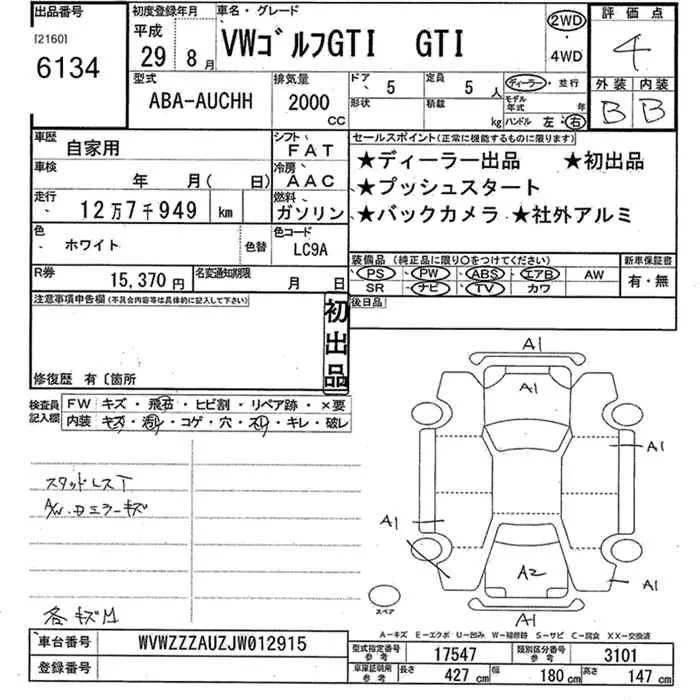 出品番号
[2160]
6134
初度登録年月
平成
29 8月
車名・グレード
VWゴルフGTI GTI
2WD
・
4WD
評価点
4
外装 内装
B B
型式
ABA-AUCHH
排気量
2000
CC
ドア 5
定員 5人
ディーラー・並行
形状
積載 kg
モデル年式 年
ハンドル 左・右
車歴
自家用
シフト
FAT
車検
年 月( 日)
冷房
AAC
走行
12万7千949 km
燃料
ガソリン
色
ホワイト
色替
色コード
LC9A
R券
15,370円
名変通知期限
月 日
セールスポイント(正常に機能するものに限ります)
★ディーラー出品 ★初出品
★プッシュスタート
★バックカメラ ★社外アルミ
装備品 (純正品に限り○をつけてください)
新車保証書
PS PW ABS エアB AW
有・無
SR ナビ TV カワ
後日品
注意事項申告欄(不具合内容等は具体的に記入して下さい)
初出品
修復歴 有〔箇所
検査員記入欄
FW キズ・飛石・ヒビ割・リペア跡・×要
内装 キズ・汚レ・コゲ・穴・スレ・キレ・破レ
スタッドレスT
A/W.Dミラーキズ
各キズ
A1
A1
A1
A1
A2
A1
A1
スペア
A-キズ E-エクボ U-凹み W-補修跡 S-サビ C-腐食 XX-交換済
車台番号
WVWZZZAUZJW012915
登録番号
型式指定番号 参考 17547
類別区分番号 参考 3101
車庫証明用 参考
長さ 427cm
幅 180cm
高さ 147cm